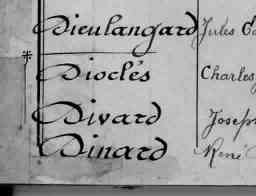 Dieulangard Jules
Dioclés Charles
Divard Joseph
Dinard René